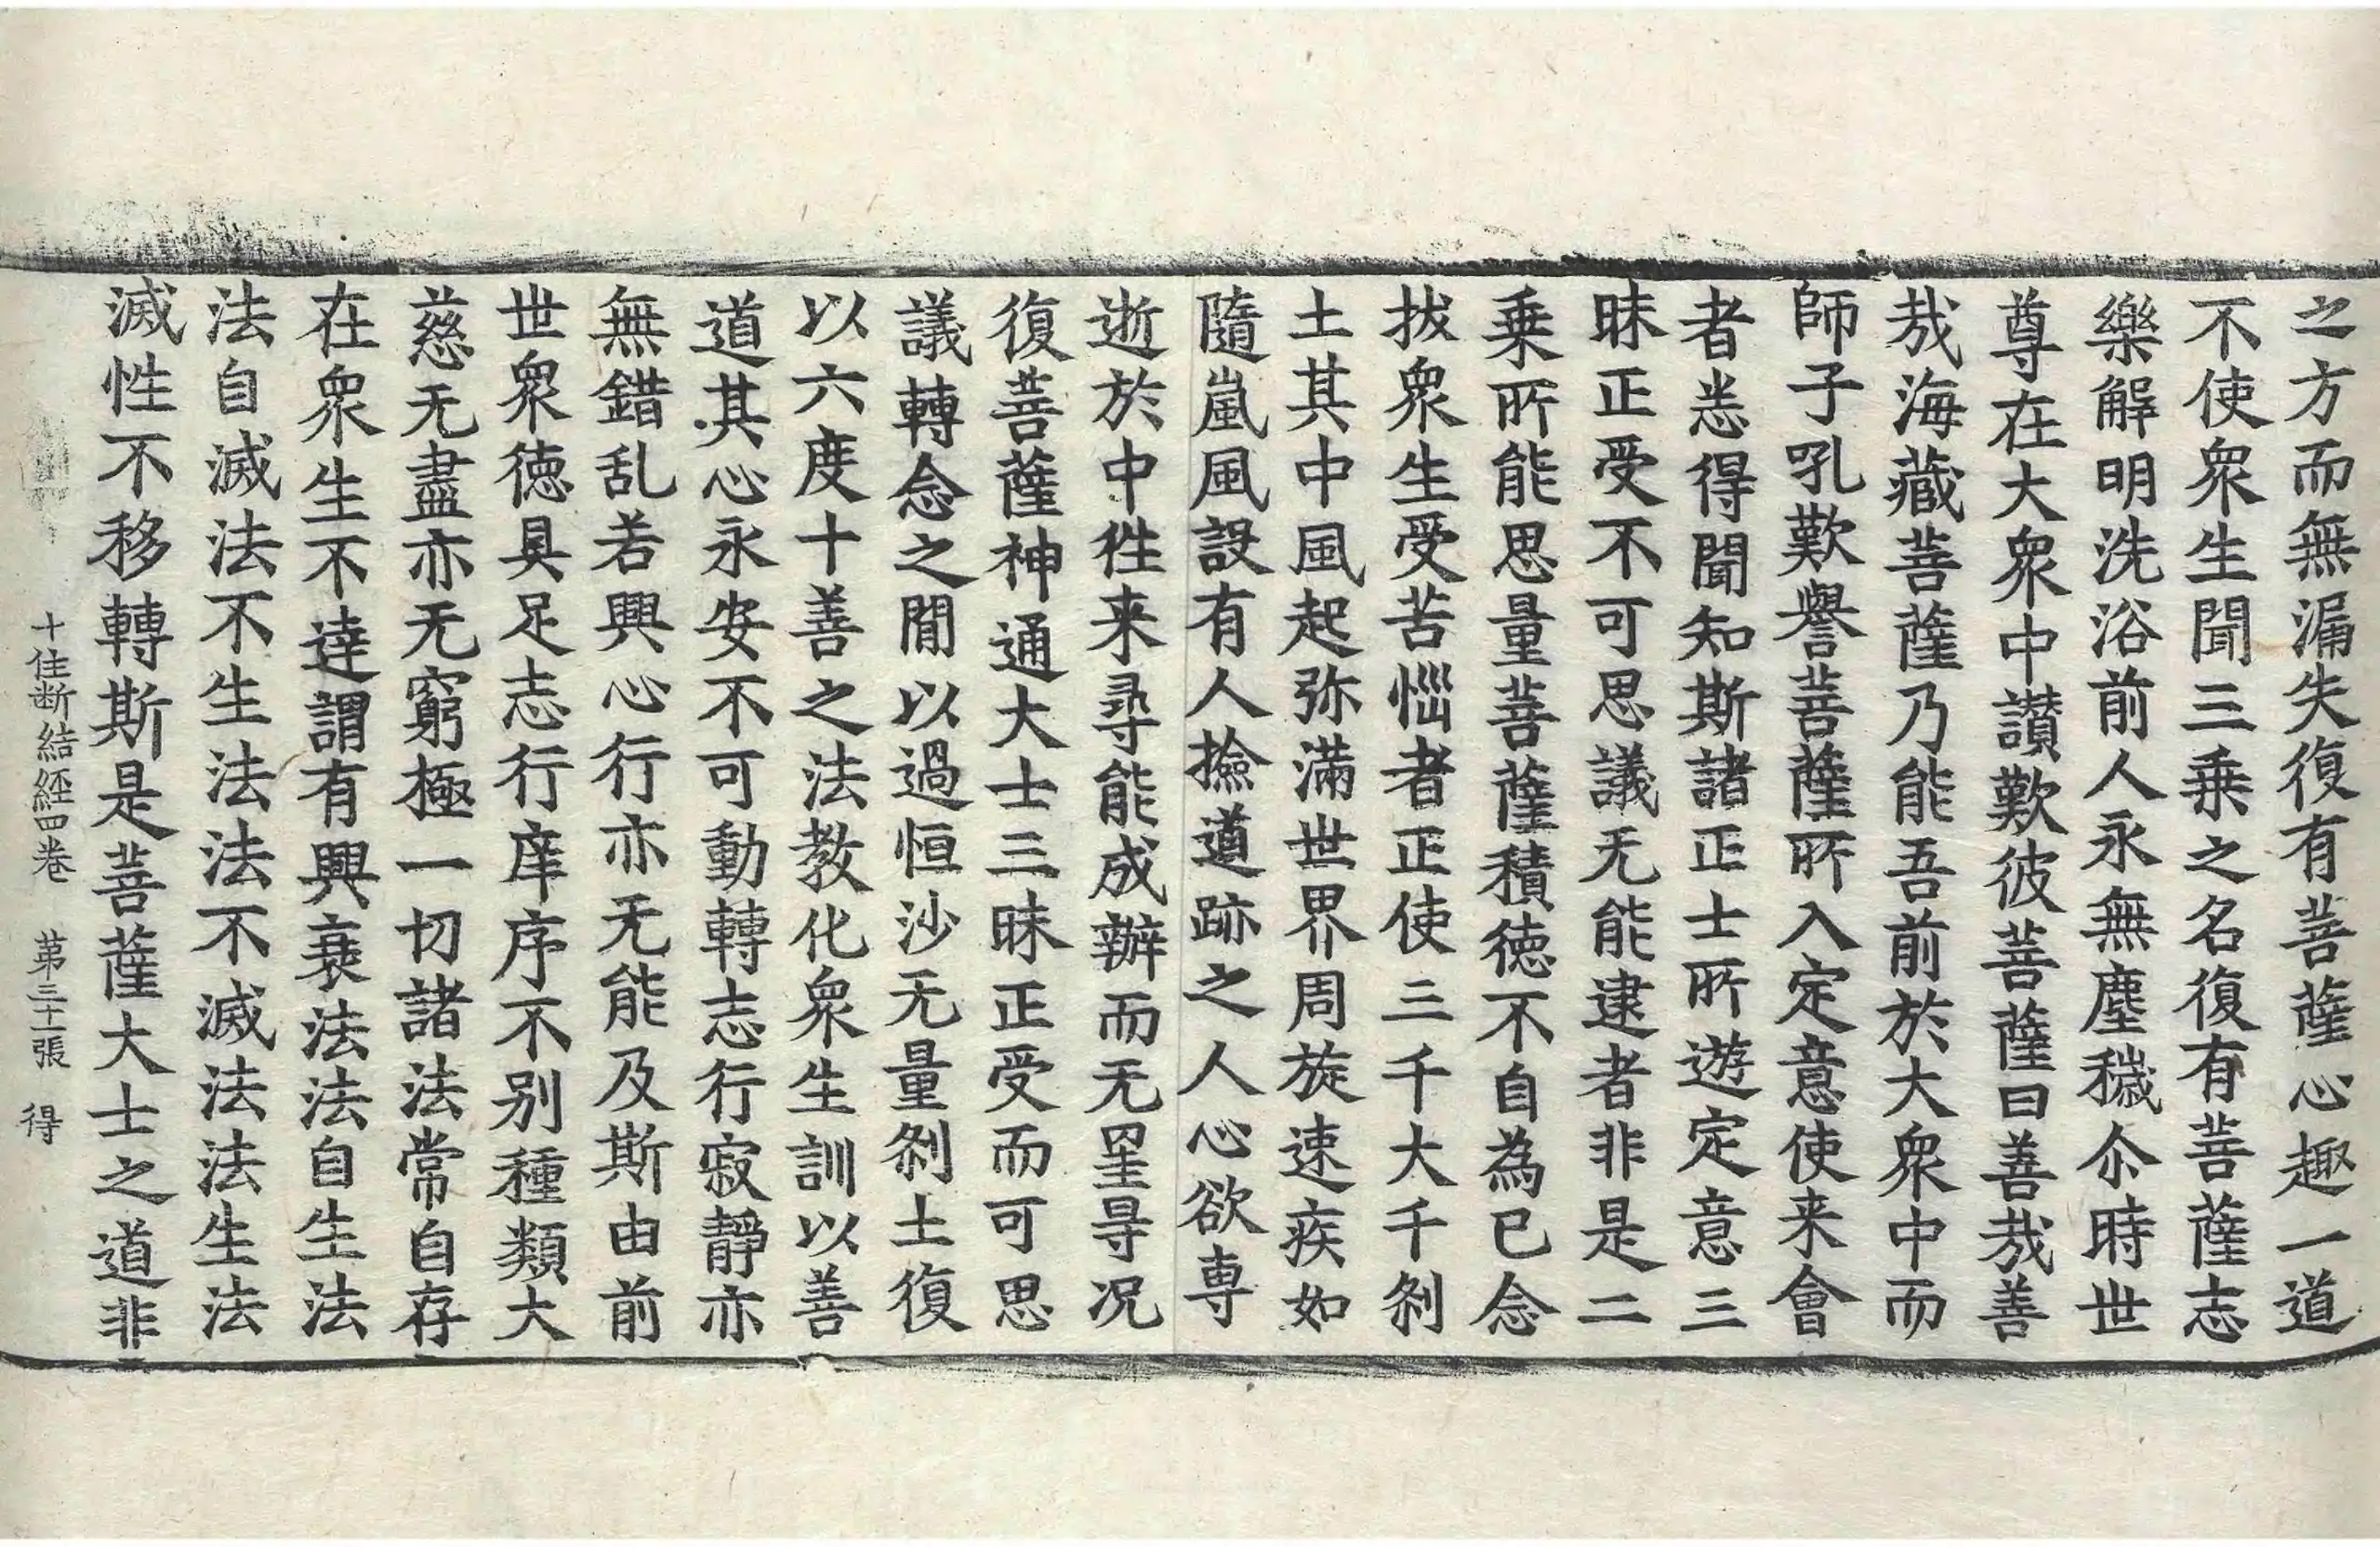 之方而無漏失復有菩薩心趣一道
不使衆生聞三乗之名復有菩薩志
樂解明洗浴前人永無塵穢尒時世
尊在大衆中讃歎彼菩薩曰善哉善
哉海藏菩薩乃能吾前於大衆中而
師子吼歎譽菩薩所入定意使来會
者悉得聞知斯諸正士所遊定意三
昧正受不可思議无能逮者非是二
乗所能思量菩薩積徳不自為已念
拔衆生受苦惱者正使三千大千刹
土其中風起弥滿世界周旋速疾如
隨嵐風設有人撿遒跡之人心欲専
逝於中徃来尋能成辦而无罣㝵况
復菩薩神通大士三昧正受而可思
議轉念之閒以過恒沙无量刹土復
以六度十善之法教化衆生訓以善
道其心永安不可動轉志行寂靜亦
無錯乱若興心行亦无能及斯由前
世衆徳具足志行庠序不别種類大
慈无盡亦无窮極一切諸法常自存
在衆生不達謂有興衰法法自生法
法自滅法不生法法不滅法法生法
滅性不移轉斯是菩薩大士之道非
十住断結經四卷 苐三十一張 得